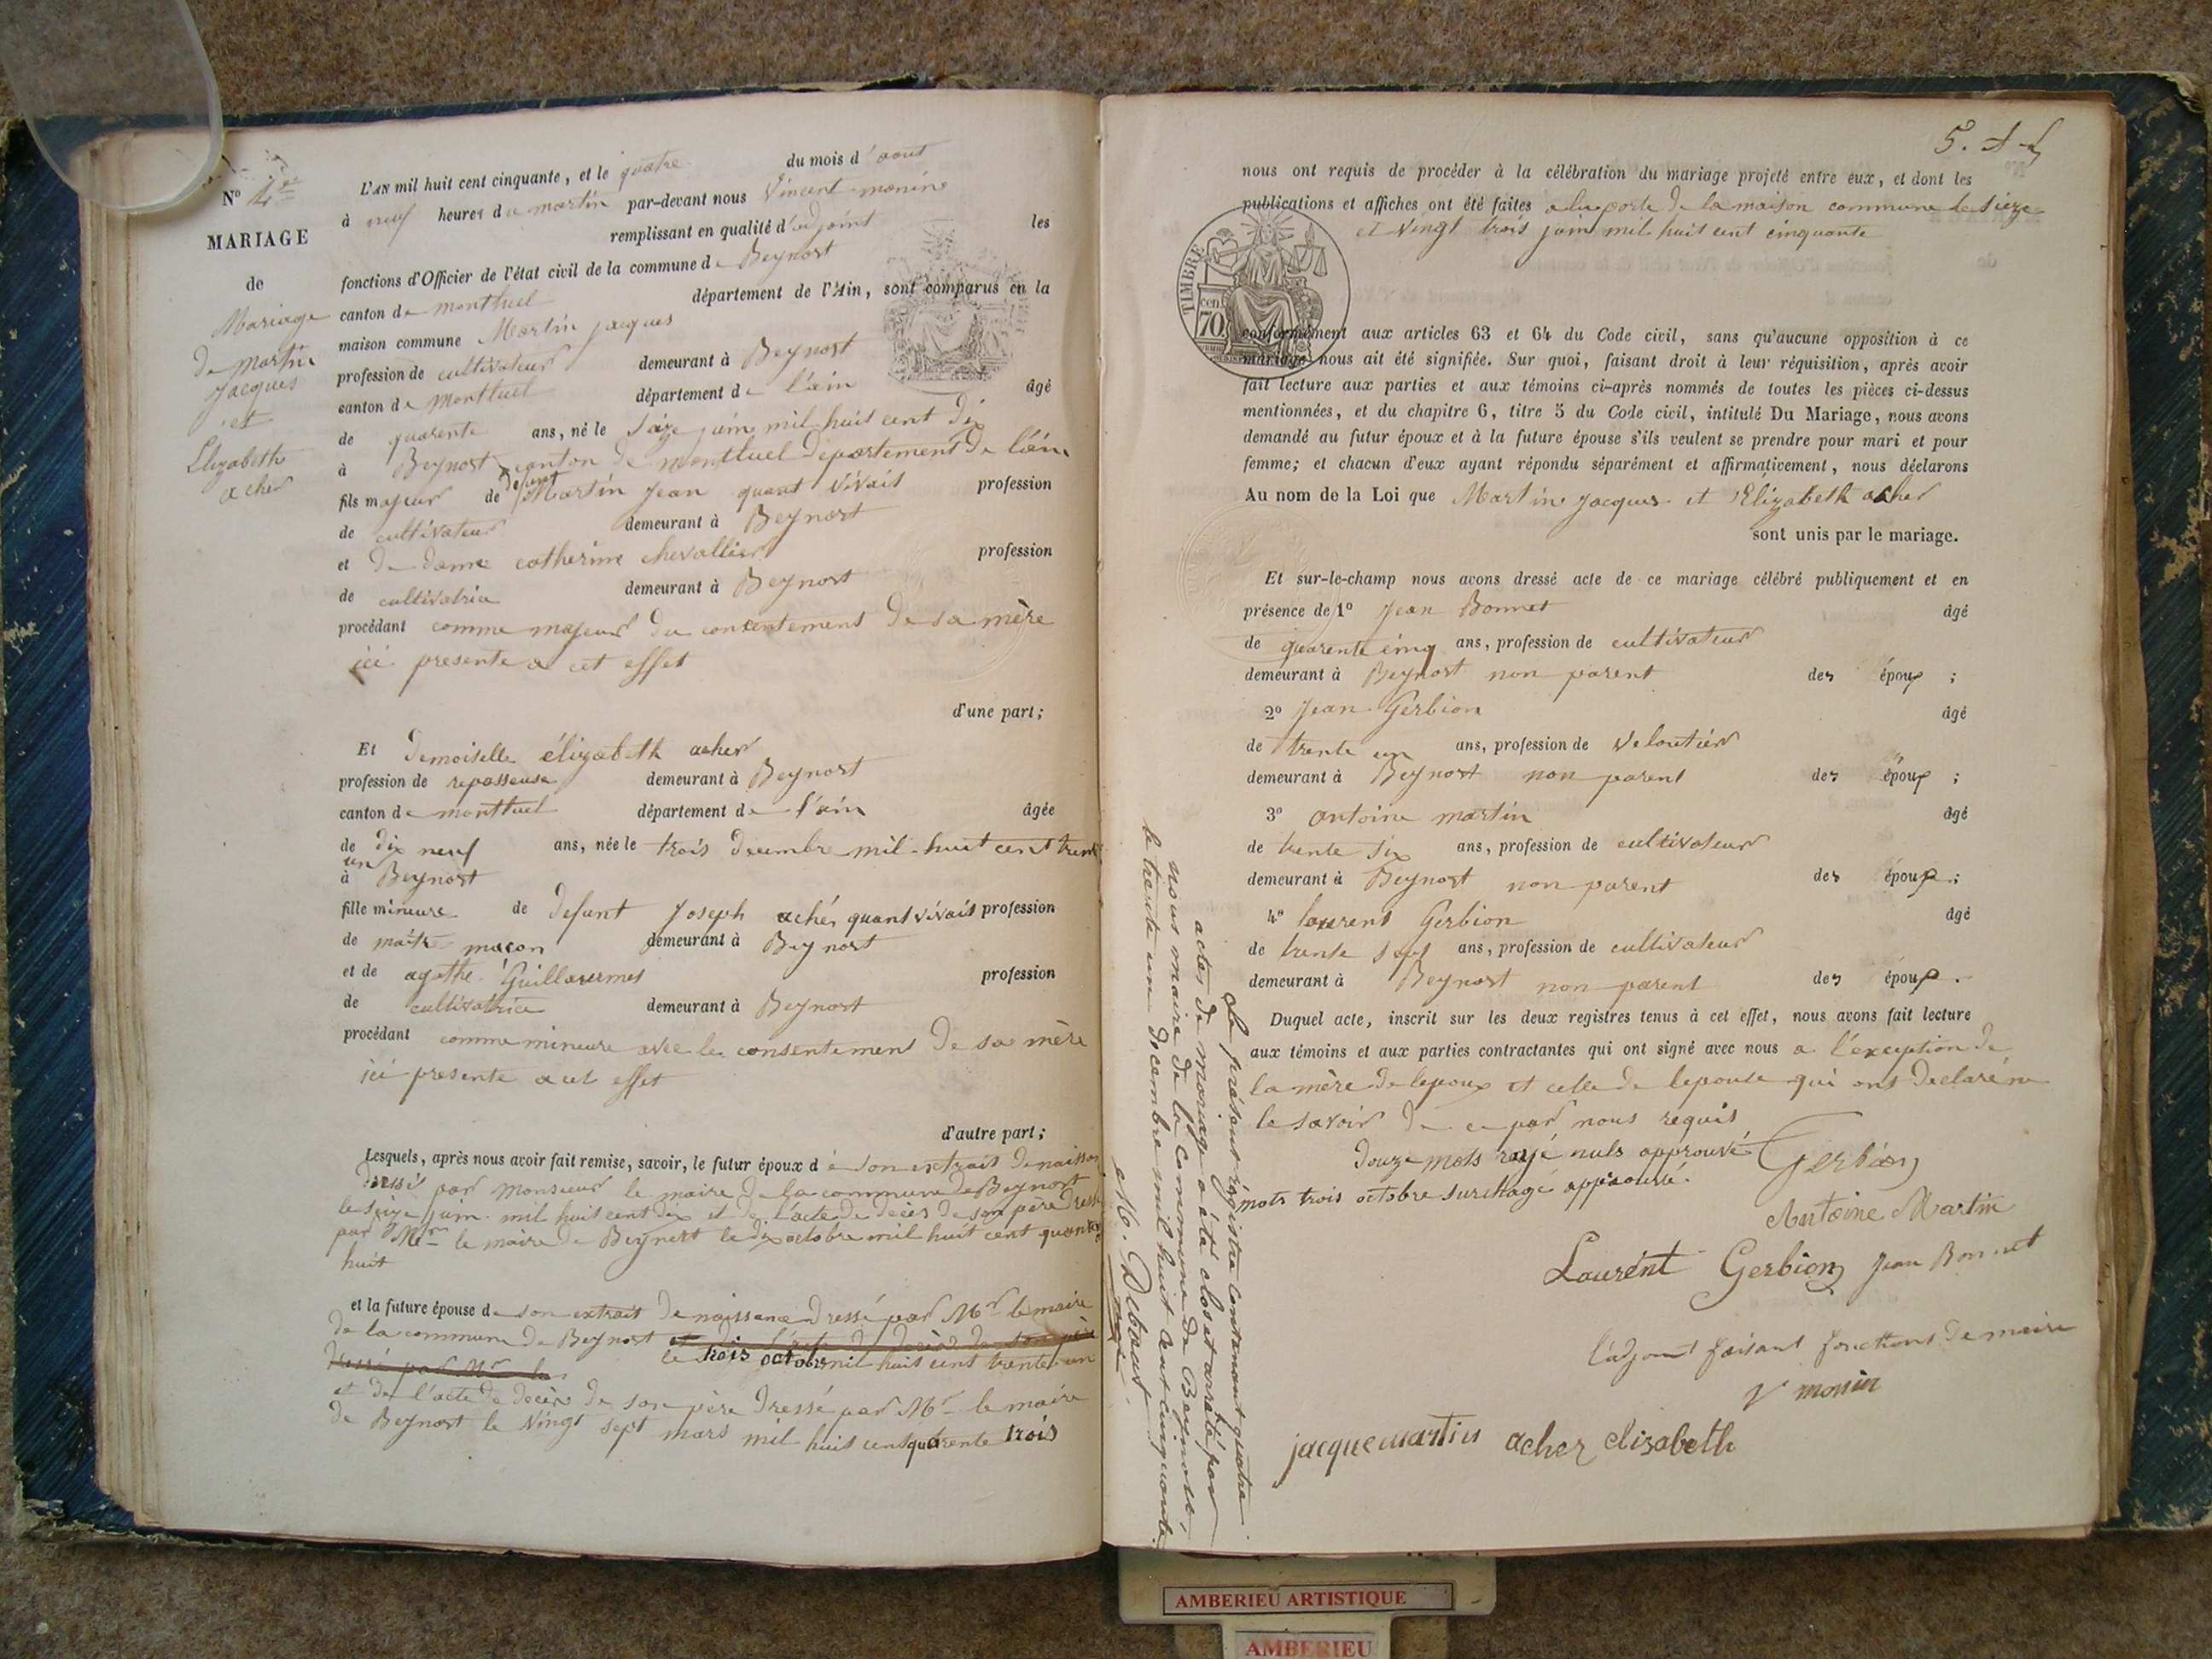 N° 4
MARIAGE
de
Mariage
de Martin
Jacques
et
Elizabeth
acher
L'AN mil huit cent cinquante, et le quatre du mois d'aout
à neuf heures du martin par-devant nous Vincent monin
remplissant en qualité d'adjoint les
fonctions d'Officier de l'état civil de la commune de Beynost
canton de montluel département de l'Ain, sont comparus en la
maison commune Martin jacques
profession de cultivateur demeurant à Beynost
canton de Montluel département de l'ain âgé
de quarente ans, né le seize juin mil huit cent dix
à Beynost canton de montluel departement de l'ain
fils majeur de defunt Martin Jean quant vivait profession
de cultivateur demeurant à Beynost
et de dame catherine chevallier profession
de cultivatrice demeurant à Beynost
procédant comme majeur du consentement de sa mère
ici presente a cet effet
d'une part;
Et demoiselle élizabeth acher
profession de repasseuse demeurant à Beynost
canton de montluel département de l'ain âgée
de dix neuf ans, née le trois decembre mil huit cent trente
un
à Beynost
fille mineure de defunt Joseph acher quant vivait profession
de maitre maçon demeurant à Beynost
et de agathe Guillaurmet profession
de cultivatrice demeurant à Beynost
procédant comme mineure avec le consentement de sa mère
ici presente a cet effet
d'autre part;
Lesquels, après nous avoir fait remise, savoir, le futur époux de son extrait de naissan
dressé par monsieur le maire de la commune de Beynost
le seize juin mil huit cent dix et de l'acte de deces de son père dressé
par Mr le maire de Beynost le dix octobre mil huit cent quarente
huit
et la future épouse de son extrait de naissance dressé par Mr le maire
de la commune de Beynost et de l'acte de decès de son père
dressé par Mr le le trois octobre mil huit cent trente un
et de l'acte de decès de son père dressé par Mr le maire
de Beynost le vingt sept mars mil huit cent quarente trois
5. A
nous ont requis de procéder à la célébration du mariage projeté entre eux, et dont les
publications et affiches ont été faites a la porte de la maison commune le sieze
et vingt trois juin mil huit cent cinquante
TIMBRE
cen
70
conformément aux articles 63 et 64 du Code civil, sans qu'aucune opposition à ce
mariage nous ait été signifiée. Sur quoi, faisant droit à leur réquisition, après avoir
fait lecture aux parties et aux témoins ci-après nommés de toutes les pièces ci-dessus
mentionnées, et du chapitre 6, titre 5 du Code civil, intitulé Du Mariage, nous avons
demandé au futur époux et à la future épouse s'ils veulent se prendre pour mari et pour
femme; et chacun d'eux ayant répondu séparément et affirmativement, nous déclarons
Au nom de la Loi que Martin jacques et Elizabeth acher
sont unis par le mariage.
Et sur-le-champ nous avons dressé acte de ce mariage célébré publiquement et en
présence de 1° Jean Bonnet âgé
de quarente cinq ans, profession de cultivateur
demeurant à Beynost non parent des époux ;
2° Jean Gerbion âgé
de trente un ans, profession de veloutier
demeurant à Beynost non parent des époux ;
3° antoine martin âgé
de trente six ans, profession de cultivateur
demeurant à Beynost non parent des époux ;
4° laurent Gerbion âgé
de trente sept ans, profession de cultivateur
demeurant à Beynost non parent des époux .
Duquel acte, inscrit sur les deux registres tenus à cet effet, nous avons fait lecture
aux témoins et aux parties contractantes qui ont signé avec nous a l'exception de
la mère de lepoux et celle de lepouse qui ont declaré ne
le savoir de ce par nous requis
Douze mots rayé nuls approuvé Gerbion
mots trois octobre surchagé approuvé.
Antoine Martin
Laurent Gerbion Jean Bonnet
l'adjoint faisant fonctions de maire
V monin
jacque martin acher elisabeth
Le présent régistre contenant quatre
actes de mariage a été clos et arrêté par
nous maire de la commune de Beynost,
le trente un décembre mil huit cent cinquante.
M. Debout
AMBERIEU ARTISTIQUE
AMBERIEU